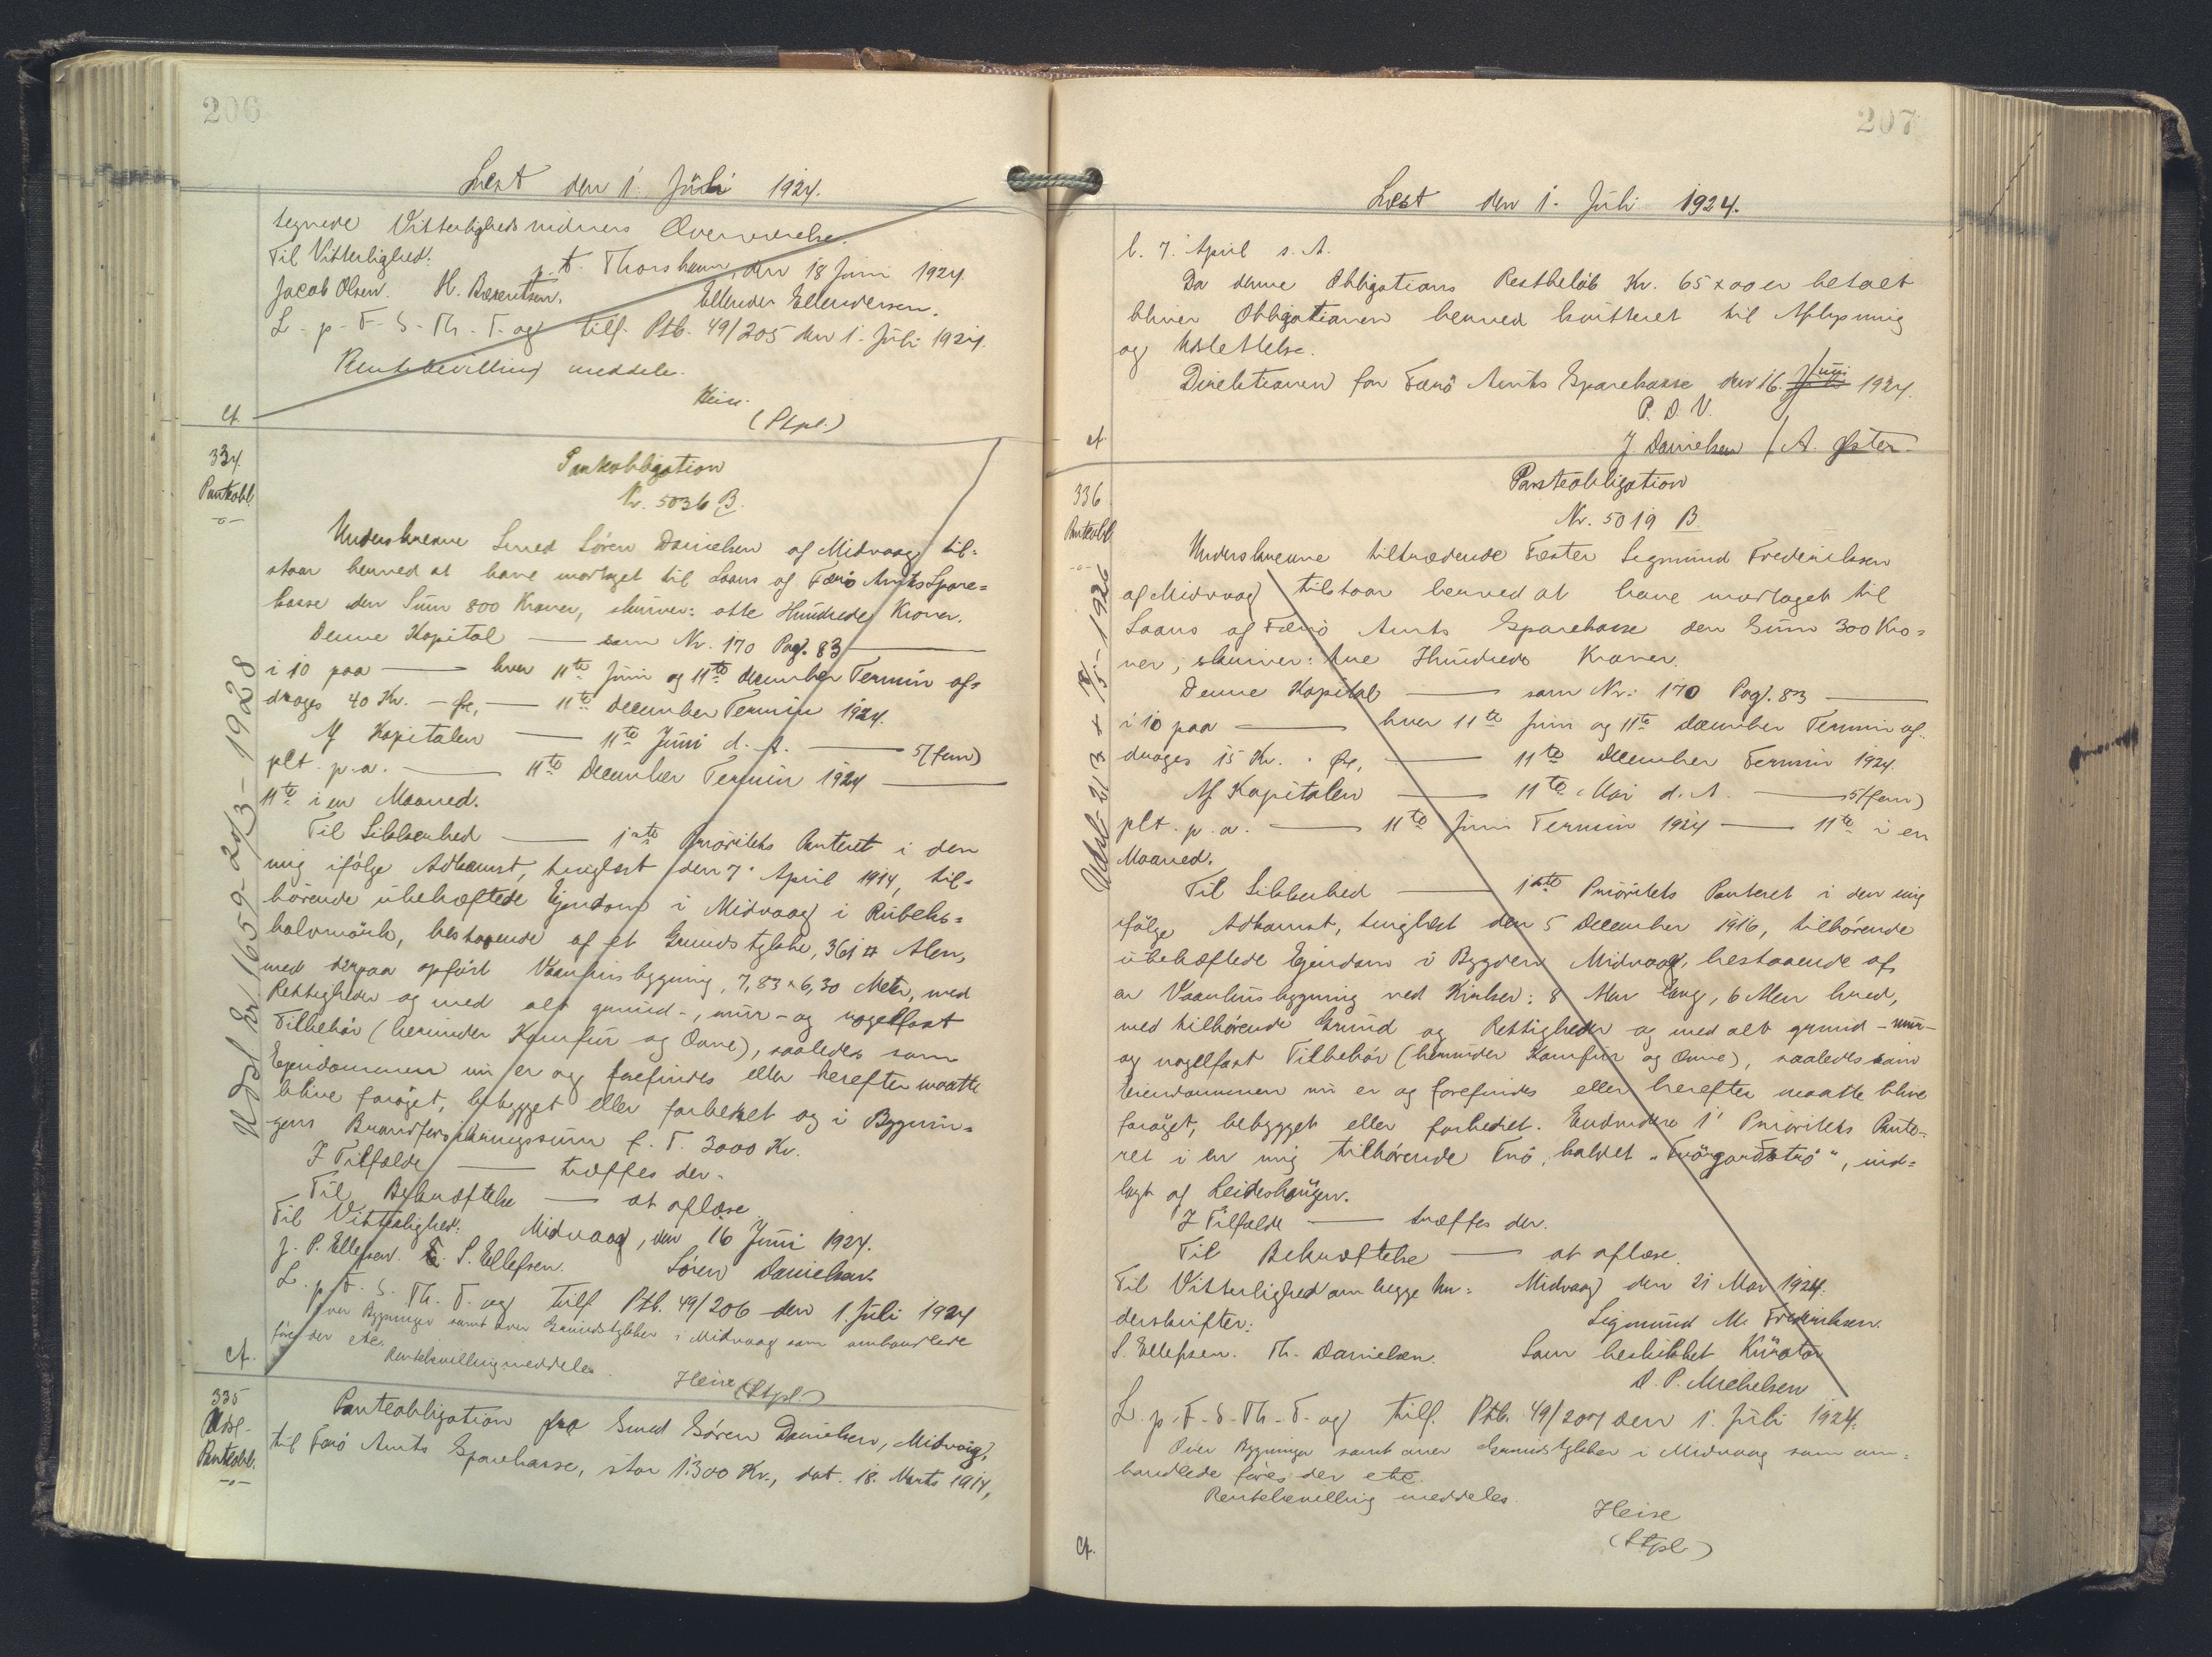 206
Læst den 1. Juli 1924.
tegnede Vitterlighedsvidners Overværelse.
Til Vitterlighed: p.t. Thorshavn den 18 Juni 1924
Jacob Olsen. H. Berentsen. Ellender Ellendersen.
L-p-F-S-Th-T. og tilf. Ptb. 49/205 den 1. Juli 1924.
Rentebevilling meddeles.
Heise.
(Stpl.)
cf.
334.
Pantobl.
Pantobligation
Nr. 5036 B.
Underskrevne Smed Søren Danielsen af Midvaag til-
staar herved at have modtaget til Laans af Færö Amts Spare-
kasse den Sum 800 Kroner, skriver: otte Hundrede Kroner.
Denne Kapital — som Nr. 170 Pag. 83 —
i 10 paa — hver 11te Juni og 11te December Termin af-
drages 40 Kr. - Øre, — 11te December Termin 1924.
Af Kapitalen — 11te Juni d. A. — 5 (fem)
plt. p.a. — 11te December Termin 1924 —
11te i en Maaned.
Til Sikkerhed — 1ste Prioritets Panteret i den
mig ifølge Adkomst, tinglæst den 7. April 1914, til-
hörende ubehæftede Ejendom i Midvaag i Rubeks-
halvmörk, bestaaende af et Grundstykke, 361 □ Alen,
med derpaa opfört Vaanhusbygning, 7,83 x 6,30 Meter, med
Rettigheder og med alt grund-, mur- og nagelfast
Tilbehör (herunder Komfur og Ovne), saaledes som
Ejendommen nu er og forefindes eller herefter maatte
blive foröget, bebygget eller forbedret og i Bygnin-
gens Brandforsikringssum f. T. 3000 Kr.
I Tilfælde — træffes der.
Til Bekræftelse — at oplæse
Til Vitterlighed: Midvaag, den 16 Juni 1924.
J. P. Ellefsen. S. Ellefsen. Søren Danielsen
L. p. F. S. Th. T. og tilf Ptb. 49/206 den 1. Juli 1924
Over Bygninger samt over Grundstykker i Midvaag som omhandlede
föres der etc.
Rentebevilling meddeles.
Heise (Stpl.)
cf.
Udsl. Nr 1659-20/3-1928
335
Udsl.
Pantobl.
Panteobligation fra Smed Søren Danielsen, Midvaag,
til Færö Amts Sparekasse, stor 1300 Kr., dat. 18. Marts 1914,
207
Læst den 1. Juli 1924.
l. 7. April s. A.
Da denne Obligations Restbeløb Kr. 65 x 00 er betalt
bliver Obligationen herved kvitteret til Aflysning
og Udslettelse.
Direktionen for Færö Amts Sparekasse den 16. Juni 1924.
P. D. V.
J Danielsen / A. Øster.
cf.
336
Pantobl.
Panteobligation
Nr. 5019 B.
Underskrevne tiltrædende Fæster Sigmund Frederiksen
af Midvaag tilstaar herved at have modtaget til
Laans af Færö Amts Sparekasse den Sum 300 Kro-
ner, skriver: tre Hundrede Kroner.
Denne Kapital — som Nr. 170 Pag. 83 —
i 10 paa — hver 11te Juni og 11te December Termin af-
drages 15 Kr. - Øre, — 11te December Termin 1924.
Af Kapitalen — 11te Mai d. A. — 5 (fem)
plt. p. a. — 11te Juni Termin 1924 — 11te i en
Maaned.
Til Sikkerhed — 1ste Prioritets Panteret i den mig
ifølge Adkomst, tinglæst den 5 December 1916, tilhörende
ubehæftede Ejendom i Bygden Midvaag, bestaaende af
en Vaanhusbygning ved Kirken: 8 Alen lang, 6 Alen bred,
med tilhørende Grund og Rettigheder og med alt grund- mur-
og nagelfast Tilbehör (herunder Komfur og Ovne), saaledes som
Eiendommen nu er og forefindes eller herefter maatte blive
foröget, bebygget eller forbedret. Endvidere 1' Prioritets Pante-
ret i en mig tilhörende Trö, kaldet "Trögardströ", ind-
lagt af Leidishaugen.
I Tilfælde — træffes der.
Til Bekræftelse — at oplæse.
Til Vitterlighed om begge Un- Midvaag den 21 Mai 1924.
derskrifter: Sigmund M. Frederiksen.
S. Ellefsen. Th. Danielsen. Som beskikket Kurator
D. P. Michelsen
L. p. F-S-Th-T- og tilf. Ptb. 49/207 den 1. Juli 1924.
Over Bygninger samt over Grundstykker i Midvaag som om-
handlede föres der etc.
Rentebevilling meddeles.
Heise
(Stpl.)
cf.